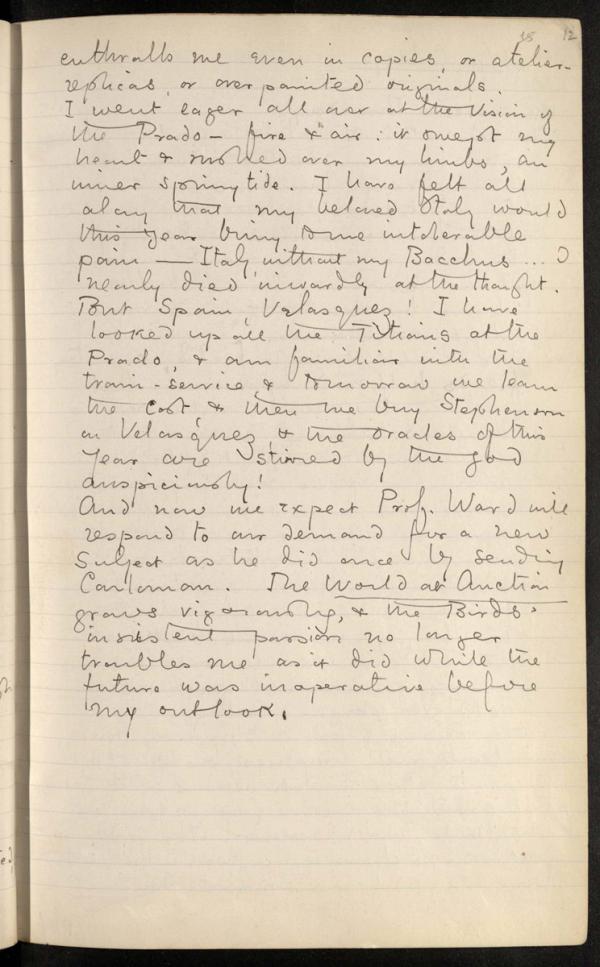 18 12
enthralls me even in copies, or atelier-
replicas, or overpainted originals.
I went eager all over at the Vision of
the Prado — fire & air : it swept my
heart & rushed over my limbs, an
inner springtide. I have felt all
along that my beloved Italy would
this year bring to me intolerable
pain — Italy without my Bacchus ... I
nearly died inwardly at the thought.
But Spain, Velasquez! I have
looked up all the Titians at the
Prado, & am familiar with the
train-service & tomorrow we learn
the cost, & then we buy Stephenson
on Velasquez, & the oracles of this
Year are stirred by the god
auspiciously!
And now we expect Prof. Ward will
respond to our demand for a new
Subject as he did once by sending
Carloman. The World at Auction
grows vigorously, & the Birds'
insistent passion no longer
troubles me as it did while the
future was inoperative before
my outlook.